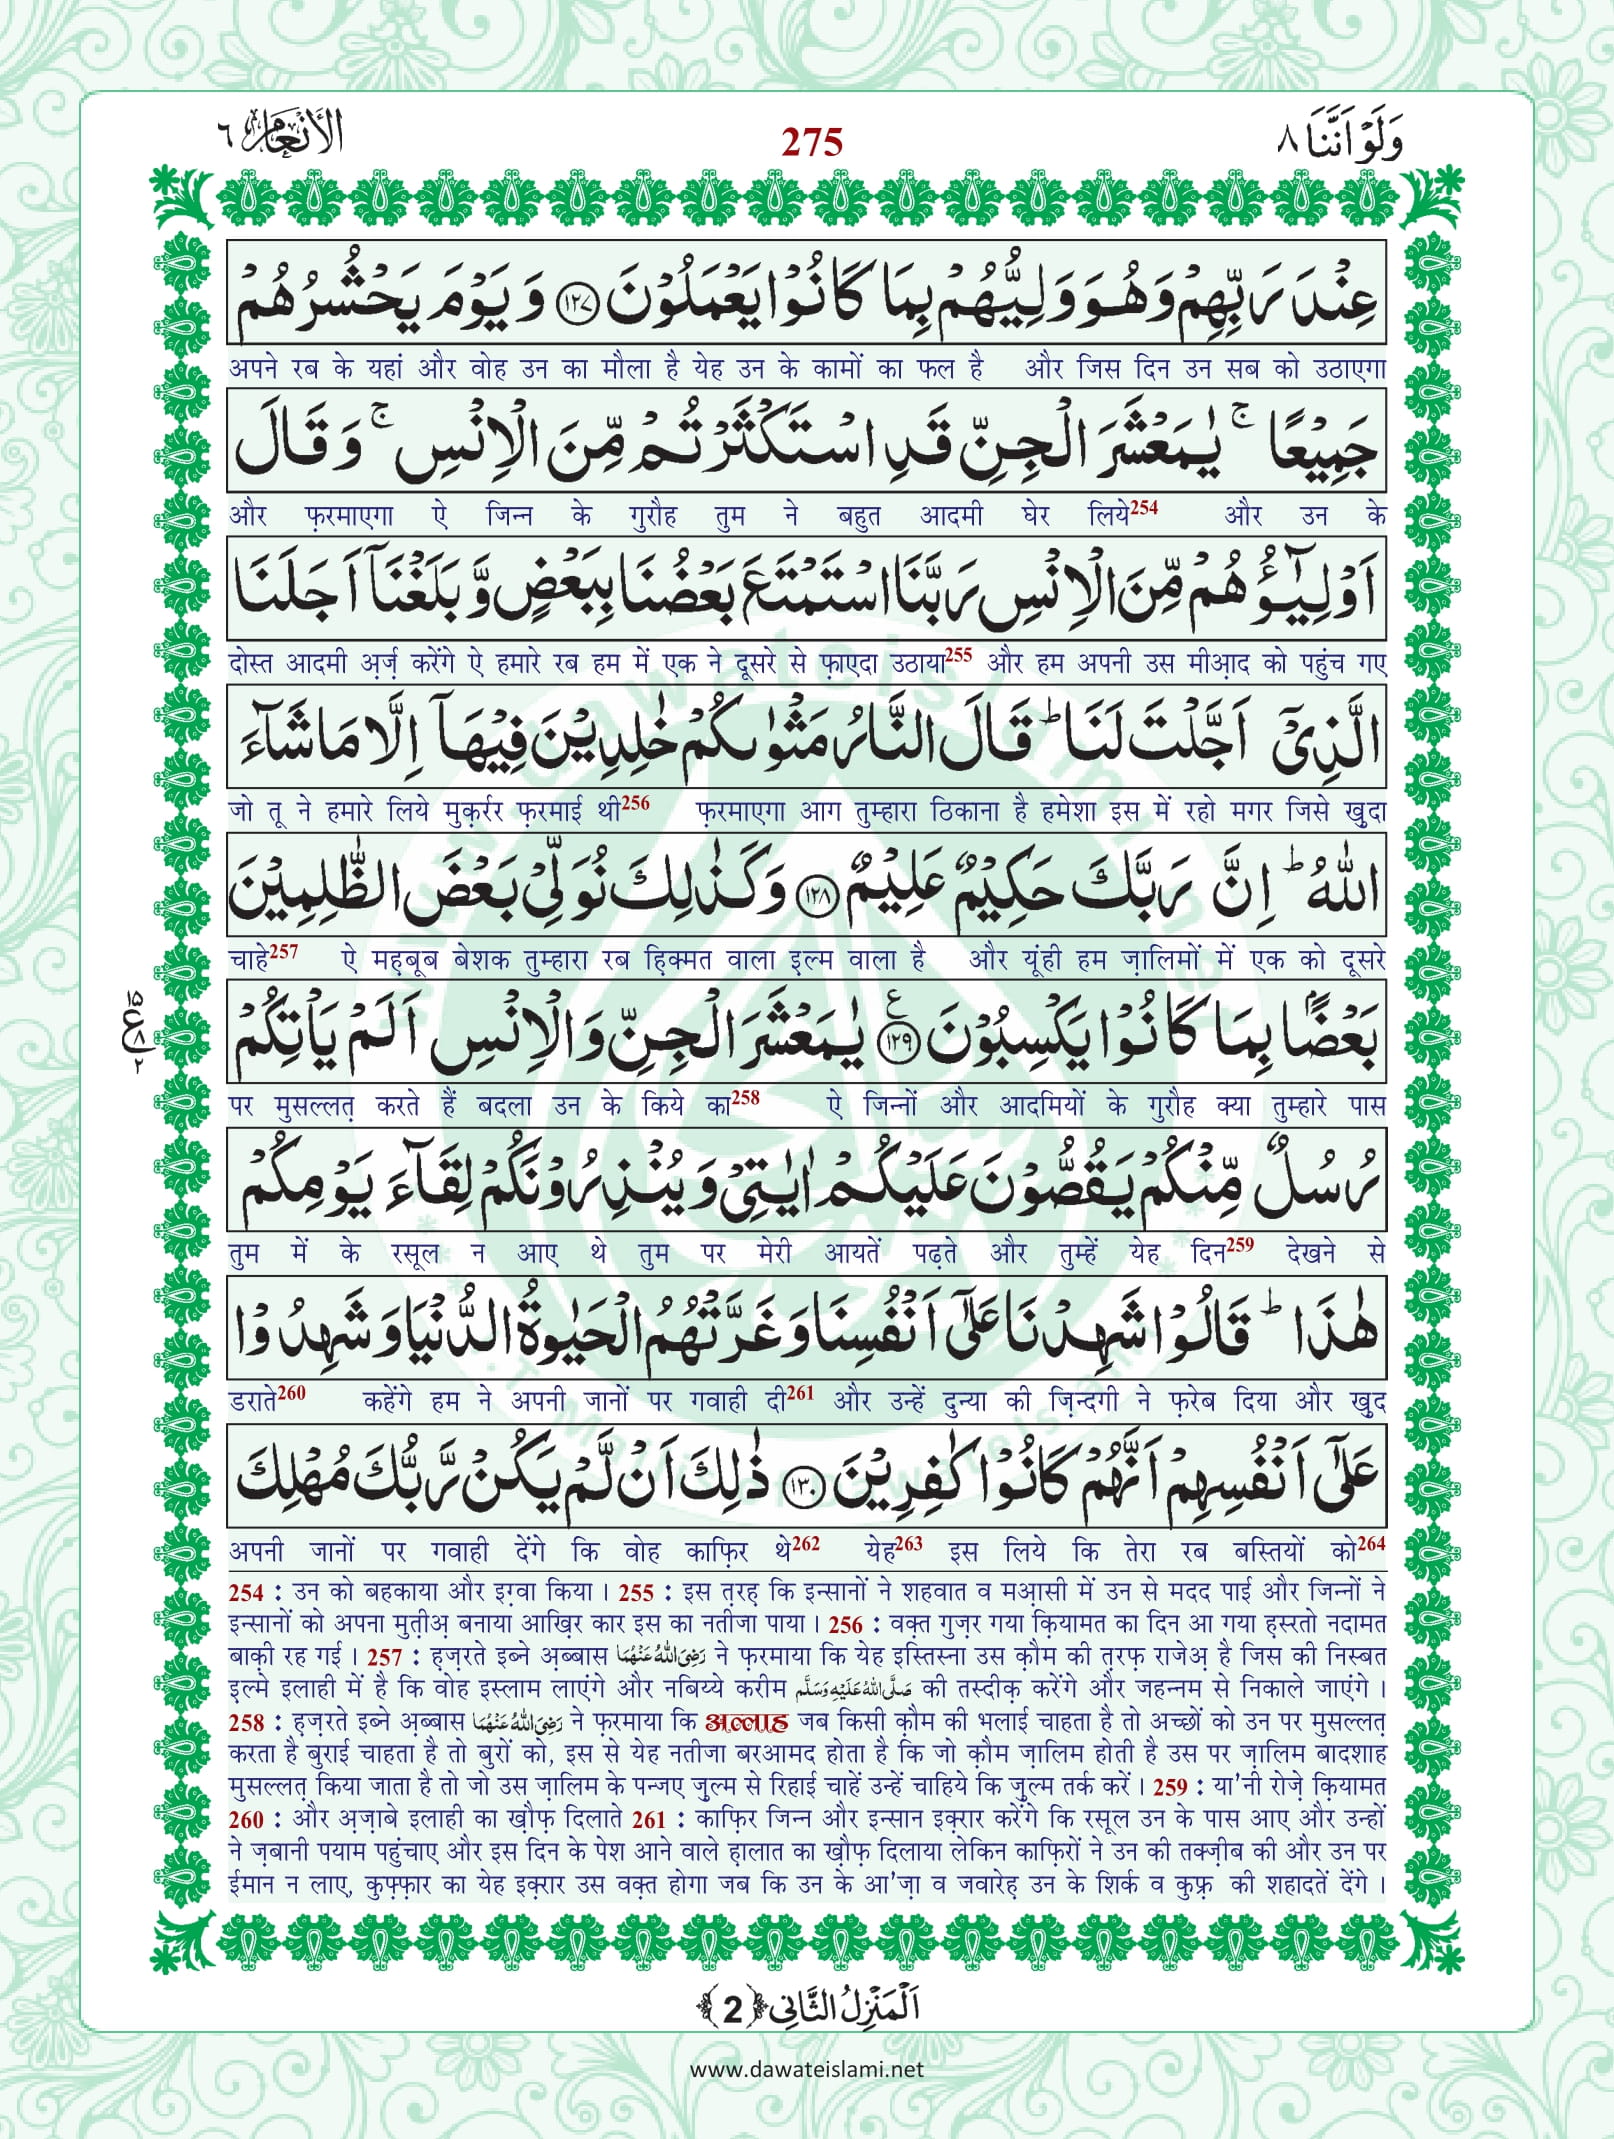 وَلَوْ اَنَّنَا ٨
275
الْاَنْعَام ٦
عِنْدَ رَبِّهِمْ وَهُوَ وَلِیُّهُمْ بِمَا كَانُوْا یَعْمَلُوْنَ ﴿۱۲۷﴾ وَ یَوْمَ یَحْشُرُهُمْ
अपने रब के यहां और वोह उन का मौला है येह उन के कामों का फल है और जिस दिन उन सब को उठाएगा
جَمِیْعًا ۚ یٰمَعْشَرَ الْجِنِّ قَدِ اسْتَكْثَرْتُمْ مِّنَ الْاِنْسِ ۚ وَ قَالَ
और फ़रमाएगा ऐ जिन्न के गुरौह तुम ने बहुत आदमी घेर लिये254 और उन के
اَوْلِیٰٓـؤُهُمْ مِّنَ الْاِنْسِ رَبَّنَا اسْتَمْتَعَ بَعْضُنَا بِبَعْضٍ وَّ بَلَغْنَاۤ اَجَلَنَا
दोस्त आदमी अ़र्ज़ करेंगे ऐ हमारे रब हम में एक ने दूसरे से फ़ाएदा उठाया255 और हम अपनी उस मीआ़द को पहुंच गए
الَّذِیْۤ اَجَّلْتَ لَنَا ؕ قَالَ النَّارُ مَثْوٰىكُمْ خٰلِدِیْنَ فِیْهَاۤ اِلَّا مَا شَآءَ
जो तू ने हमारे लिये मुक़र्रर फ़रमाई थी256 फ़रमाएगा आग तुम्हारा ठिकाना है हमेशा इस में रहो मगर जिसे ख़ुदा
اللّٰهُ ؕ اِنَّ رَبَّكَ حَكِیْمٌ عَلِیْمٌ ﴿۱۲۸﴾ وَ كَذٰلِكَ نُوَلِّیْ بَعْضَ الظّٰلِمِیْنَ
चाहे257 ऐ मह़बूब बेशक तुम्हारा रब हि़क्मत वाला इ़ल्म वाला है और यूंही हम ज़ालिमों में एक को दूसरे
بَعْضًۢا بِمَا كَانُوْا یَكْسِبُوْنَ ﴿۱۲۹﴾ ع یٰمَعْشَرَ الْجِنِّ وَ الْاِنْسِ اَلَمْ یَاْتِكُمْ
١٥ ع ٨ ٢
पर मुसल्लत़ करते हैं बदला उन के किये का258 ऐ जिन्नों और आदमियों के गुरौह क्या तुम्हारे पास
رُسُلٌ مِّنْكُمْ یَقُصُّوْنَ عَلَیْكُمْ اٰیٰتِیْ وَ یُنْذِرُوْنَكُمْ لِقَآءَ یَوْمِكُمْ
तुम में के रसूल न आए थे तुम पर मेरी आयतें पढ़ते और तुम्हें येह दिन259 देखने से
هٰذَا ؕ قَالُوْا شَهِدْنَا عَلٰۤى اَنْفُسِنَا وَ غَرَّتْهُمُ الْحَیٰوةُ الدُّنْیَا وَ شَهِدُوْا
डराते260 कहेंगे हम ने अपनी जानों पर गवाही दी261 और उन्हें दुन्या की ज़िन्दगी ने फ़रेब दिया और ख़ुद
عَلٰۤى اَنْفُسِهِمْ اَنَّهُمْ كَانُوْا كٰفِرِیْنَ ﴿۱۳۰﴾ ذٰلِكَ اَنْ لَّمْ یَكُنْ رَّبُّكَ مُهْلِكَ
अपनी जानों पर गवाही देंगे कि वोह काफ़िर थे262 येह263 इस लिये कि तेरा रब बस्तियों को264
254 : उन को बहकाया और इग़्वा किया। 255 : इस त़रह़ कि इन्सानों ने शहवात व मआ़सी में उन से मदद पाई और जिन्नों ने
इन्सानों को अपना मुत़ीअ़ बनाया आख़िर कार इस का नतीजा पाया। 256 : वक़्त गुज़र गया क़ियामत का दिन आ गया ह़स्रतो नदामत
बाक़ी रह गई। 257 : ह़ज़रते इब्ने अ़ब्बास رَضِیَ اللّٰهُ عَنْهُمَا ने फ़रमाया कि येह इस्तिस्ना उस क़ौम की त़रफ़ राजेअ़ है जिस की निस्बत
इ़ल्मे इलाही में है कि वोह इस्लाम लाएंगे और नबिय्ये करीम صَلَّی اللّٰهُ عَلَیْهِ وَسَلَّم की तस्दीक़ करेंगे और जहन्नम से निकाले जाएंगे।
258 : ह़ज़रते इब्ने अ़ब्बास رَضِیَ اللّٰهُ عَنْهُمَا ने फ़रमाया कि अल्लाह जब किसी क़ौम की भलाई चाहता है तो अच्छों को उन पर मुसल्लत़
करता है बुराई चाहता है तो बुरों को, इस से येह नतीजा बरआमद होता है कि जो क़ौम ज़ालिम होती है उस पर ज़ालिम बादशाह
मुसल्लत़ किया जाता है तो जो उस ज़ालिम के पन्जए ज़ुल्म से रिहाई चाहें उन्हें चाहिये कि ज़ुल्म तर्क करें। 259 : या'नी रोज़े क़ियामत
260 : और अ़ज़ाबे इलाही का ख़ौफ़ दिलाते 261 : काफ़िर जिन्न और इन्सान इक़्रार करेंगे कि रसूल उन के पास आए और उन्हों
ने ज़बानी पयाम पहुंचाए और इस दिन के पेश आने वाले ह़ालात का ख़ौफ़ दिलाया लेकिन काफ़िरों ने उन की तक्ज़ीब की और उन पर
ईमान न लाए, कुफ़्फ़ार का येह इक़्रार उस वक़्त होगा जब कि उन के आ'ज़ा व जवारेह़ उन के शिर्क व कुफ़्र की शहादतें देंगे।
اَلْمَنْزِلُ الثَّانِی ﴿2﴾
www.dawateislami.net